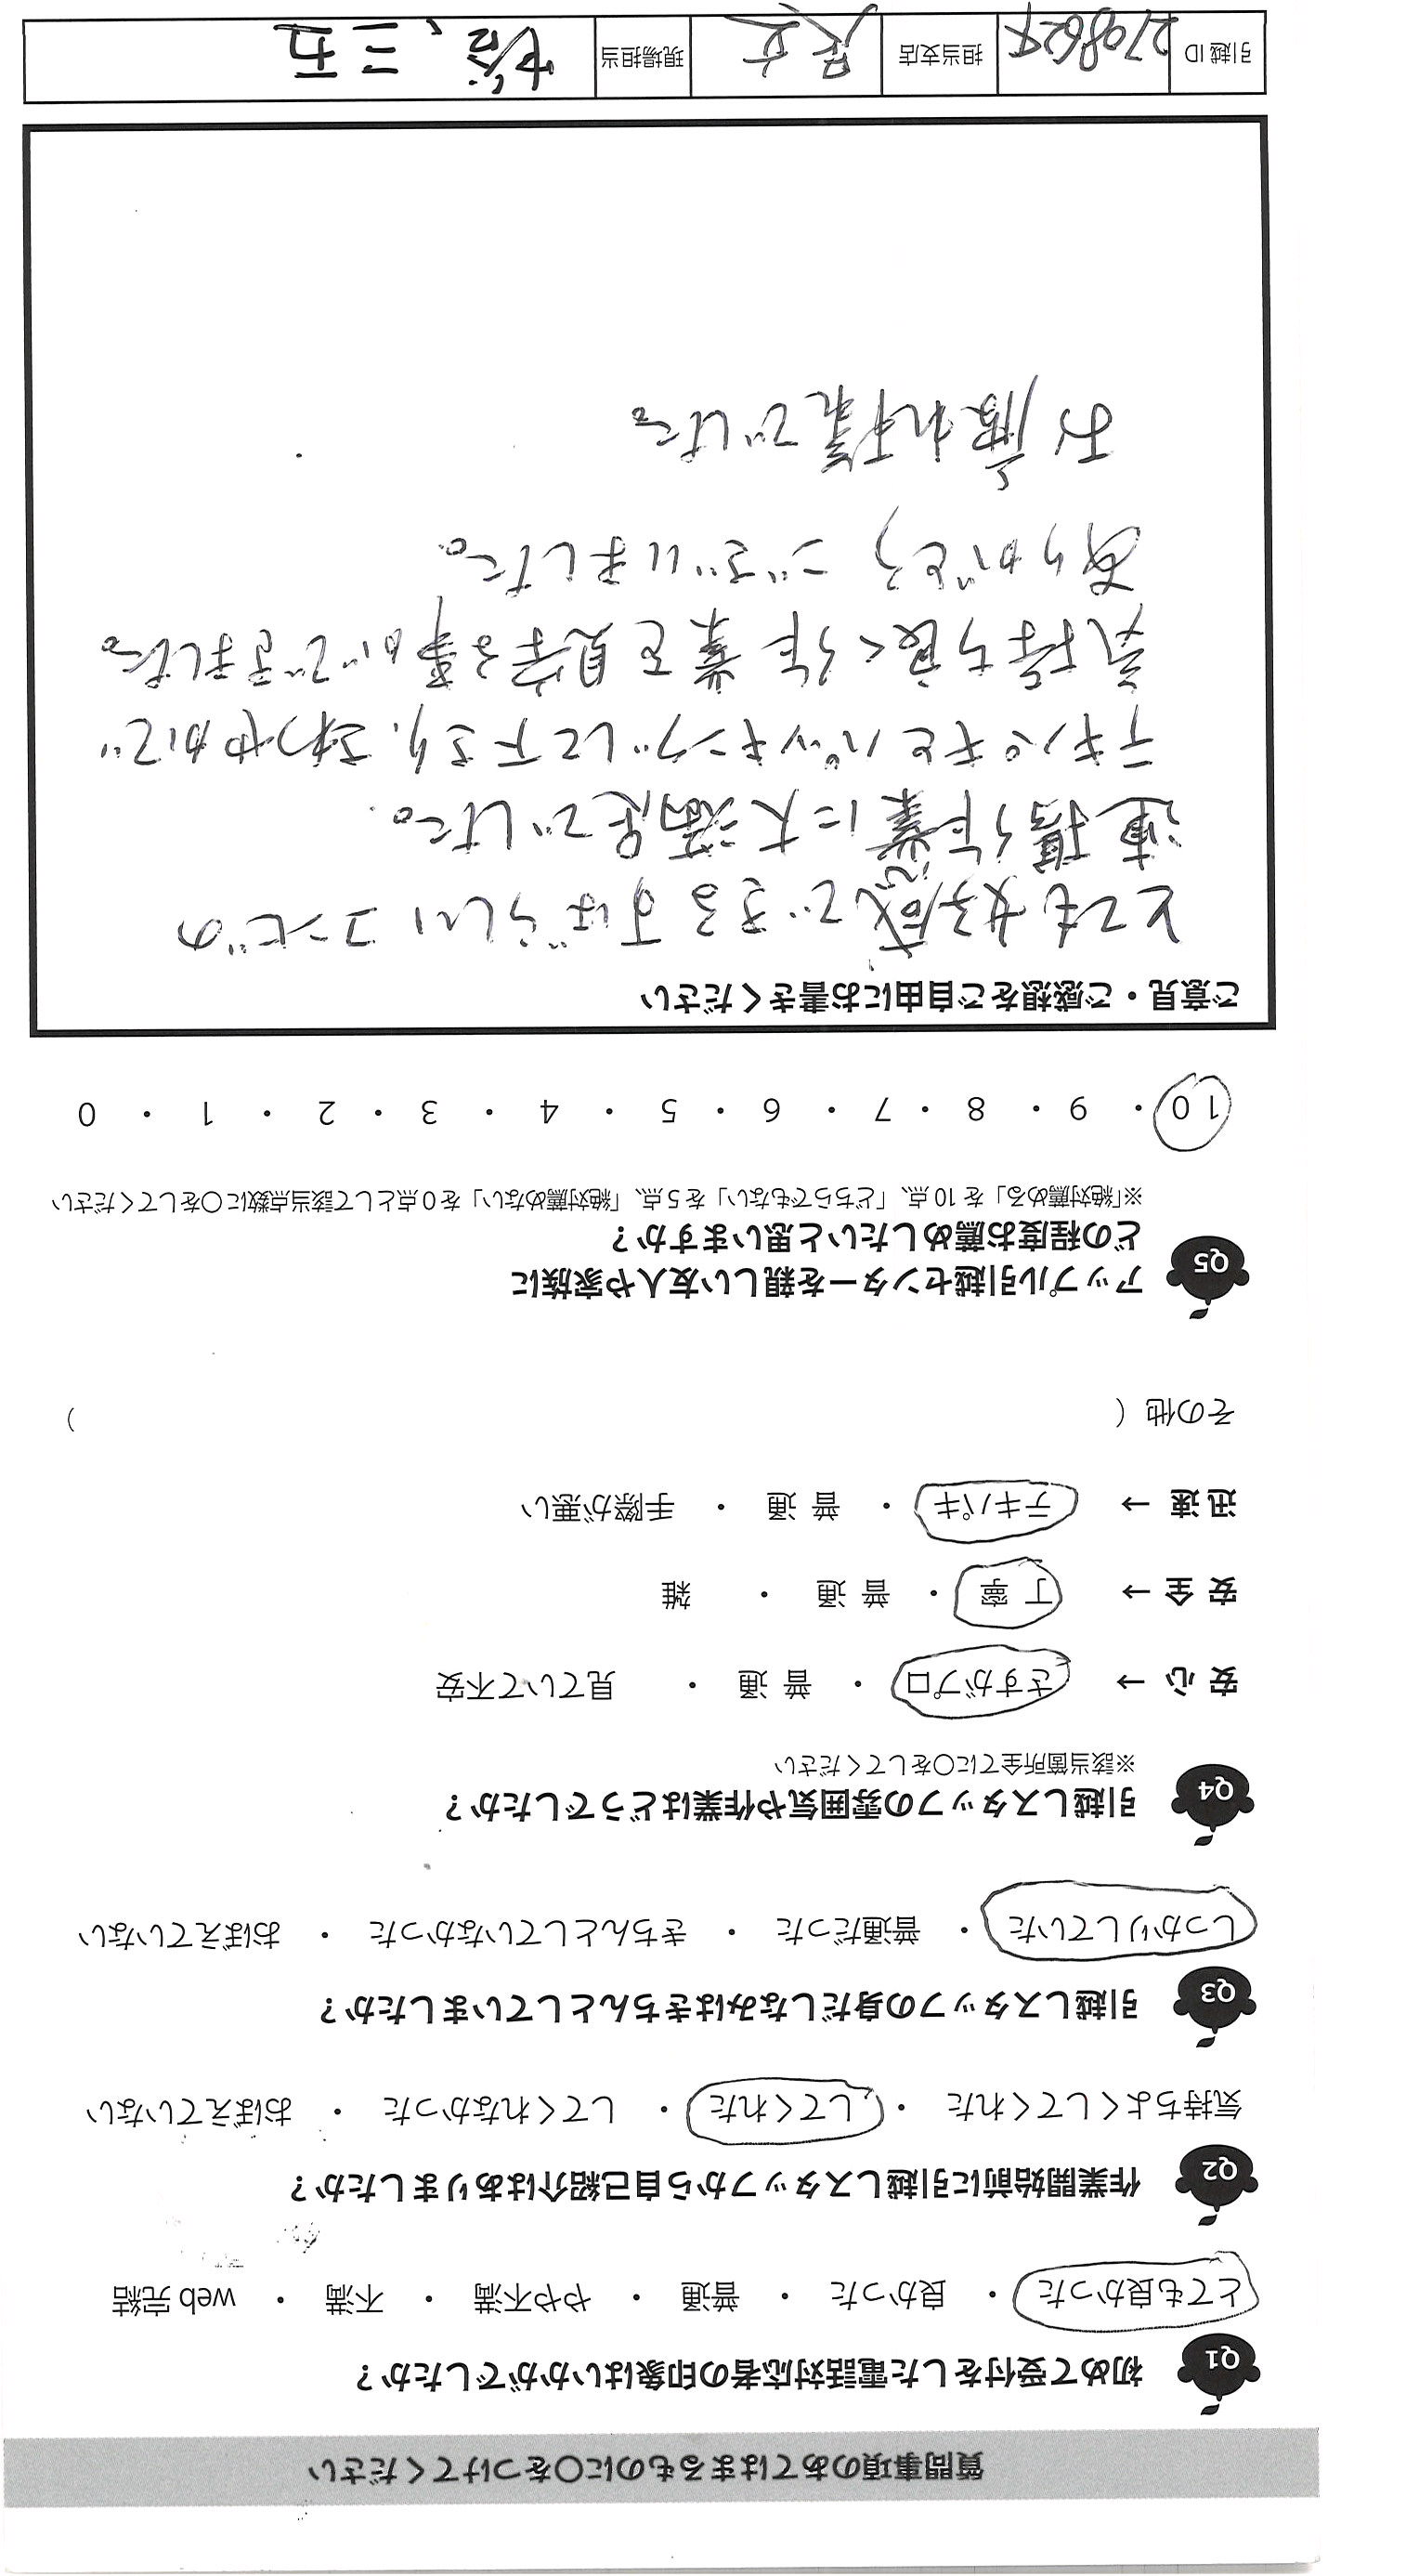 質問事項のあてはまるものに〇をつけてください
Q1 初めて受付をした電話対応者の印象はいかがでしたか？
とても良かった ・ 良かった ・ 普通 ・ やや不満 ・ 不満 ・ web 完結
Q2 作業開始前に引越しスタッフから自己紹介はありましたか？
気持ちよくしてくれた ・ してくれた ・ してくれなかった ・ おぼえていない
Q3 引越しスタッフの身だしなみはきちんとしていましたか？
しっかりしていた ・ 普通だった ・ きちんとしていなかった ・ おぼえていない
Q4 引越しスタッフの雰囲気や作業はどうでしたか？
※該当箇所全てに〇をしてください
安 心 → さすがプロ ・ 普 通 ・ 見ていて不安
安 全 → 丁 寧 ・ 普 通 ・ 雑
迅 速 → テキパキ ・ 普 通 ・ 手際が悪い
その他 （ ）
Q5 アップル引越センターを親しい友人や家族に
どの程度お薦めしたいと思いますか？
※「絶対薦める」を 10 点、「どちらでもない」を 5 点、「絶対薦めない」を 0 点として該当点数に〇をしてください
10 ・ 9 ・ 8 ・ 7 ・ 6 ・ 5 ・ 4 ・ 3 ・ 2 ・ 1 ・ 0
ご意見・ご感想をご自由にお書きください
とても好感できるすばらしいコンビの
連携作業に大満足でした。
テキパキとパッキングして下さり、さわやかで
気持ち良く作業を見学る事ができました。
ありがとうございました。
お疲れ様でした。
引越 ID 2708624 担当支店 足立 現場担当 三五